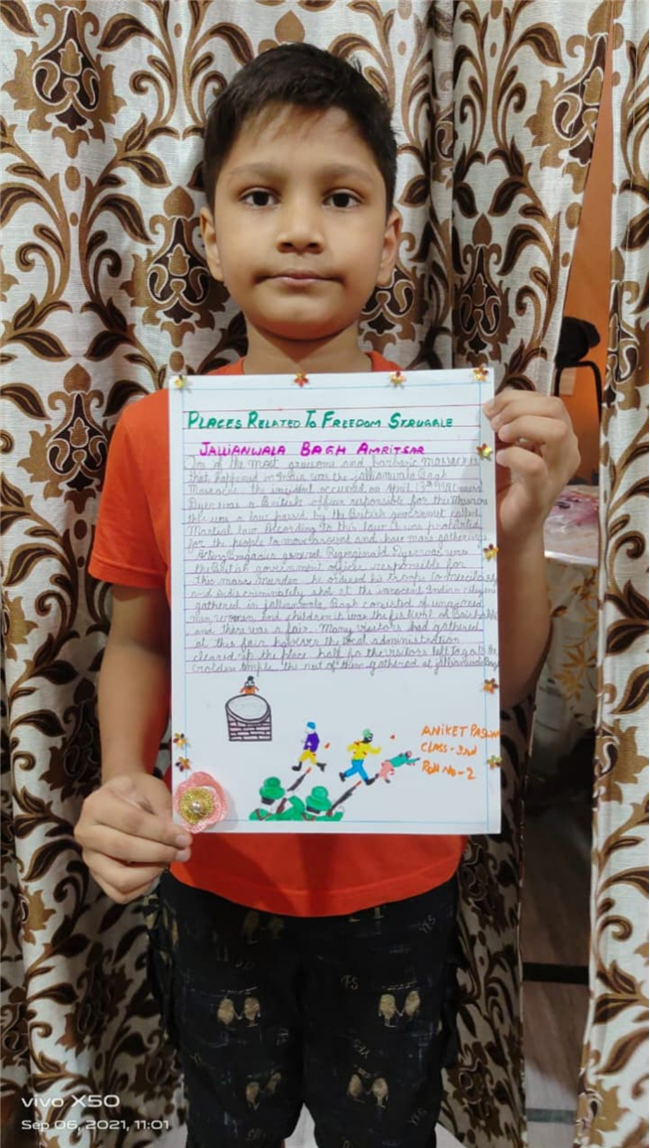 PLACES RELATED TO FREEDOM STRUGGLE
JALLIANWALA BAGH AMRITSAR
of the most gruesome and barbaric
that happened in was the Jallianwala Bagh
Massacre the incident occured on April 13th
Dyer was a British officer responsible for this Massacre
this was a law passed by the British goverment called
Martial law According to this law it was prohibited
for the people to move around and have mass gatherings
general was
the British government officer responsible for
this mass Murder he ordered his troops to
and indiscriminately shot at the innocent Indian citizens
gathered in Jallianwala Bagh consisted of
men women and children it was the festival of
and there was a fair. Many visitors had gathered
at this fair the local administration
cleared the place half for the visitors left to go to the
Golden temple the rest of them gathered at
ANIKET
CLASS-3rd
Roll No-2
vivo X50
Sep 06, 2021, 11:01